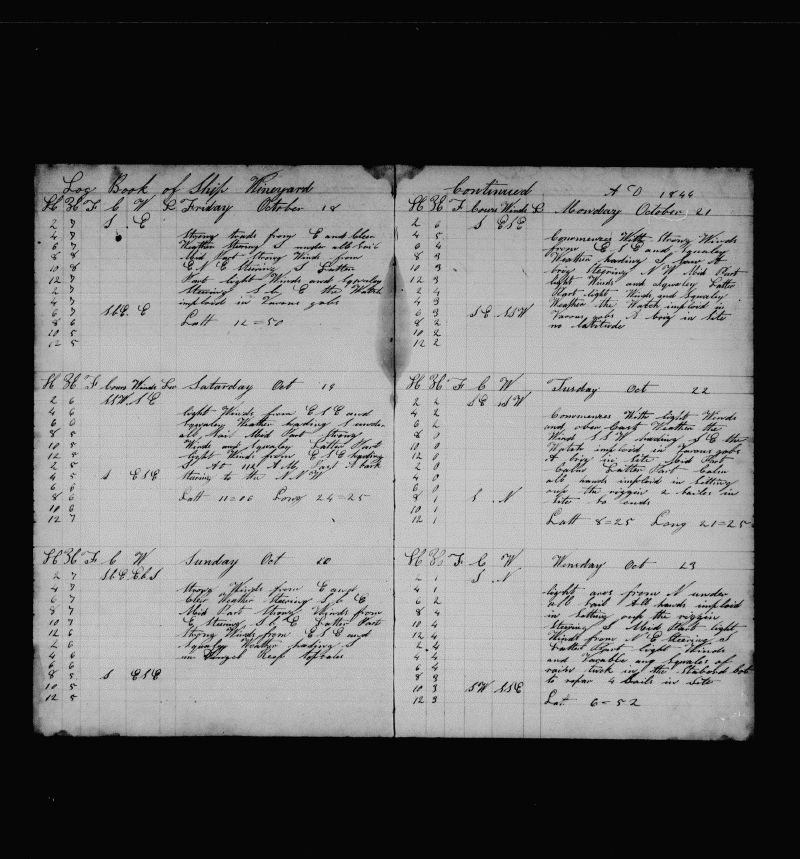 Log Book of Ship Vineyard
H K F C W L Friday October 18
2 7 S E
4 7 Strong trads from E and Cleer
6 7 Weather Stering S under all Sail
8 8 Mid Part Strong Winds from
10 8 E N E Stering S Latter
12 7 Part light Winds and Squaley
2 7 Steering S b E the Watch
4 7 imploid in Varous gobs
6 7 SbE E
8 6 Latt 12=50
10 5
12 5
H K F Cours Winds Lee Saturday Oct 19
2 6 SSW S E
4 6 light Winds from E S E and
6 6 Squaley Weather heading S under
8 5 all Sail Mid Part Strong
10 5 Winds and Squaley Latter Part
12 5 light Winds from E S E heading
2 5 S At A M a bark
4 5 S ESE Stering to the N N W
6 6
8 6 Latt 11=16 Long 24=25
10 6
12 7
H K F C W Sunday Oct 20
2 7 SbE EbS
4 7 Strong Winds from E and
6 7 Cleer Weather Steering S b E
8 7 Mid Part Strong Winds from
10 7 E Stering S b E Latter Part
12 6 Strong Winds from E S E and
2 6 Squaley Weather heading S
4 6 un Dungel Reep topsales
6 6
8 5 S ESE
10 5
12 5
Continued A D 1844
H K F Cours Winds L Monday October 21
2 6 S ESE
4 5 Commences With Strong Winds
6 4 from E S E and Squaley
8 3 Weather heading S saw A
10 3 brig Stepring N W Mid Part
12 3 light Winds and Squaley Latter
2 4 Part light Winds and Squaley
4 3 Weather the Watch imploid in
6 3 SE SSW Varous gobs A brig in Site
8 2 no latitude
10 2
12 2
H K F C W Tusday Oct 22
2 2 SE SSW
4 2 Commences With light Winds
6 2 and over Cast Weather the
8 0 Wind S S W heading S E the
10 0 Watch imploid in Varous gobs
12 0 A brig in Site Mid Part
2 0 Calm Latter Part Calm
4 0 all hands imploid in Setting
6 0 up the riggin 2 sailes in
8 1 S N Site to ends
10 1
12 1 Latt 8=25 Long 21=25
H K F C W Winsday Oct 23
2 1 S N
4 1 light ares from N under
6 2 all Sail All hands imploid
8 4 in Setting oup the riggin
10 4 Steering S Mid Part light
12 4 Winds from N E Steering S
2 4 Latter Part light Winds
4 4 and Varable and Squales of
6 4 rain tuck in the Stabord bot
8 3 to repar 4 Sails in Site
10 3 SW SSE
12 3 Lat 6=52